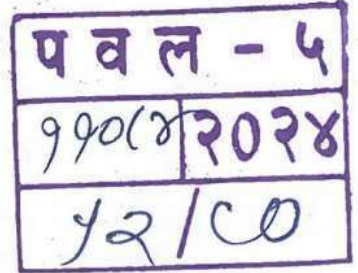 प व ल - ५
११०८४ २०२४
५२/८०